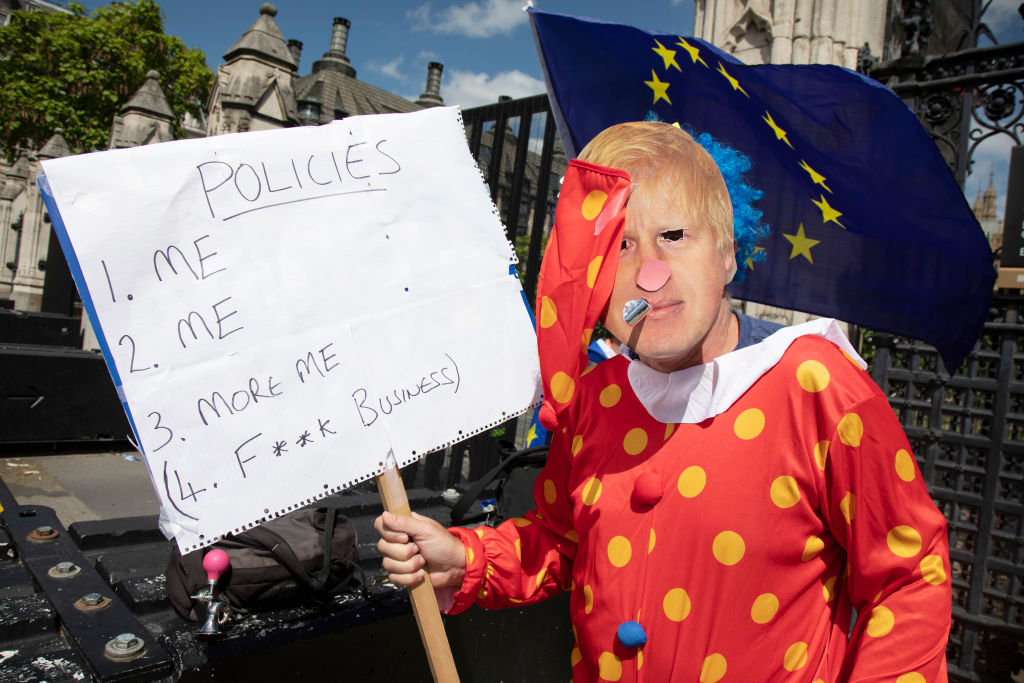 POLICIES
1. ME
2. ME
3. MORE ME
(4. F*** BUSINESS)